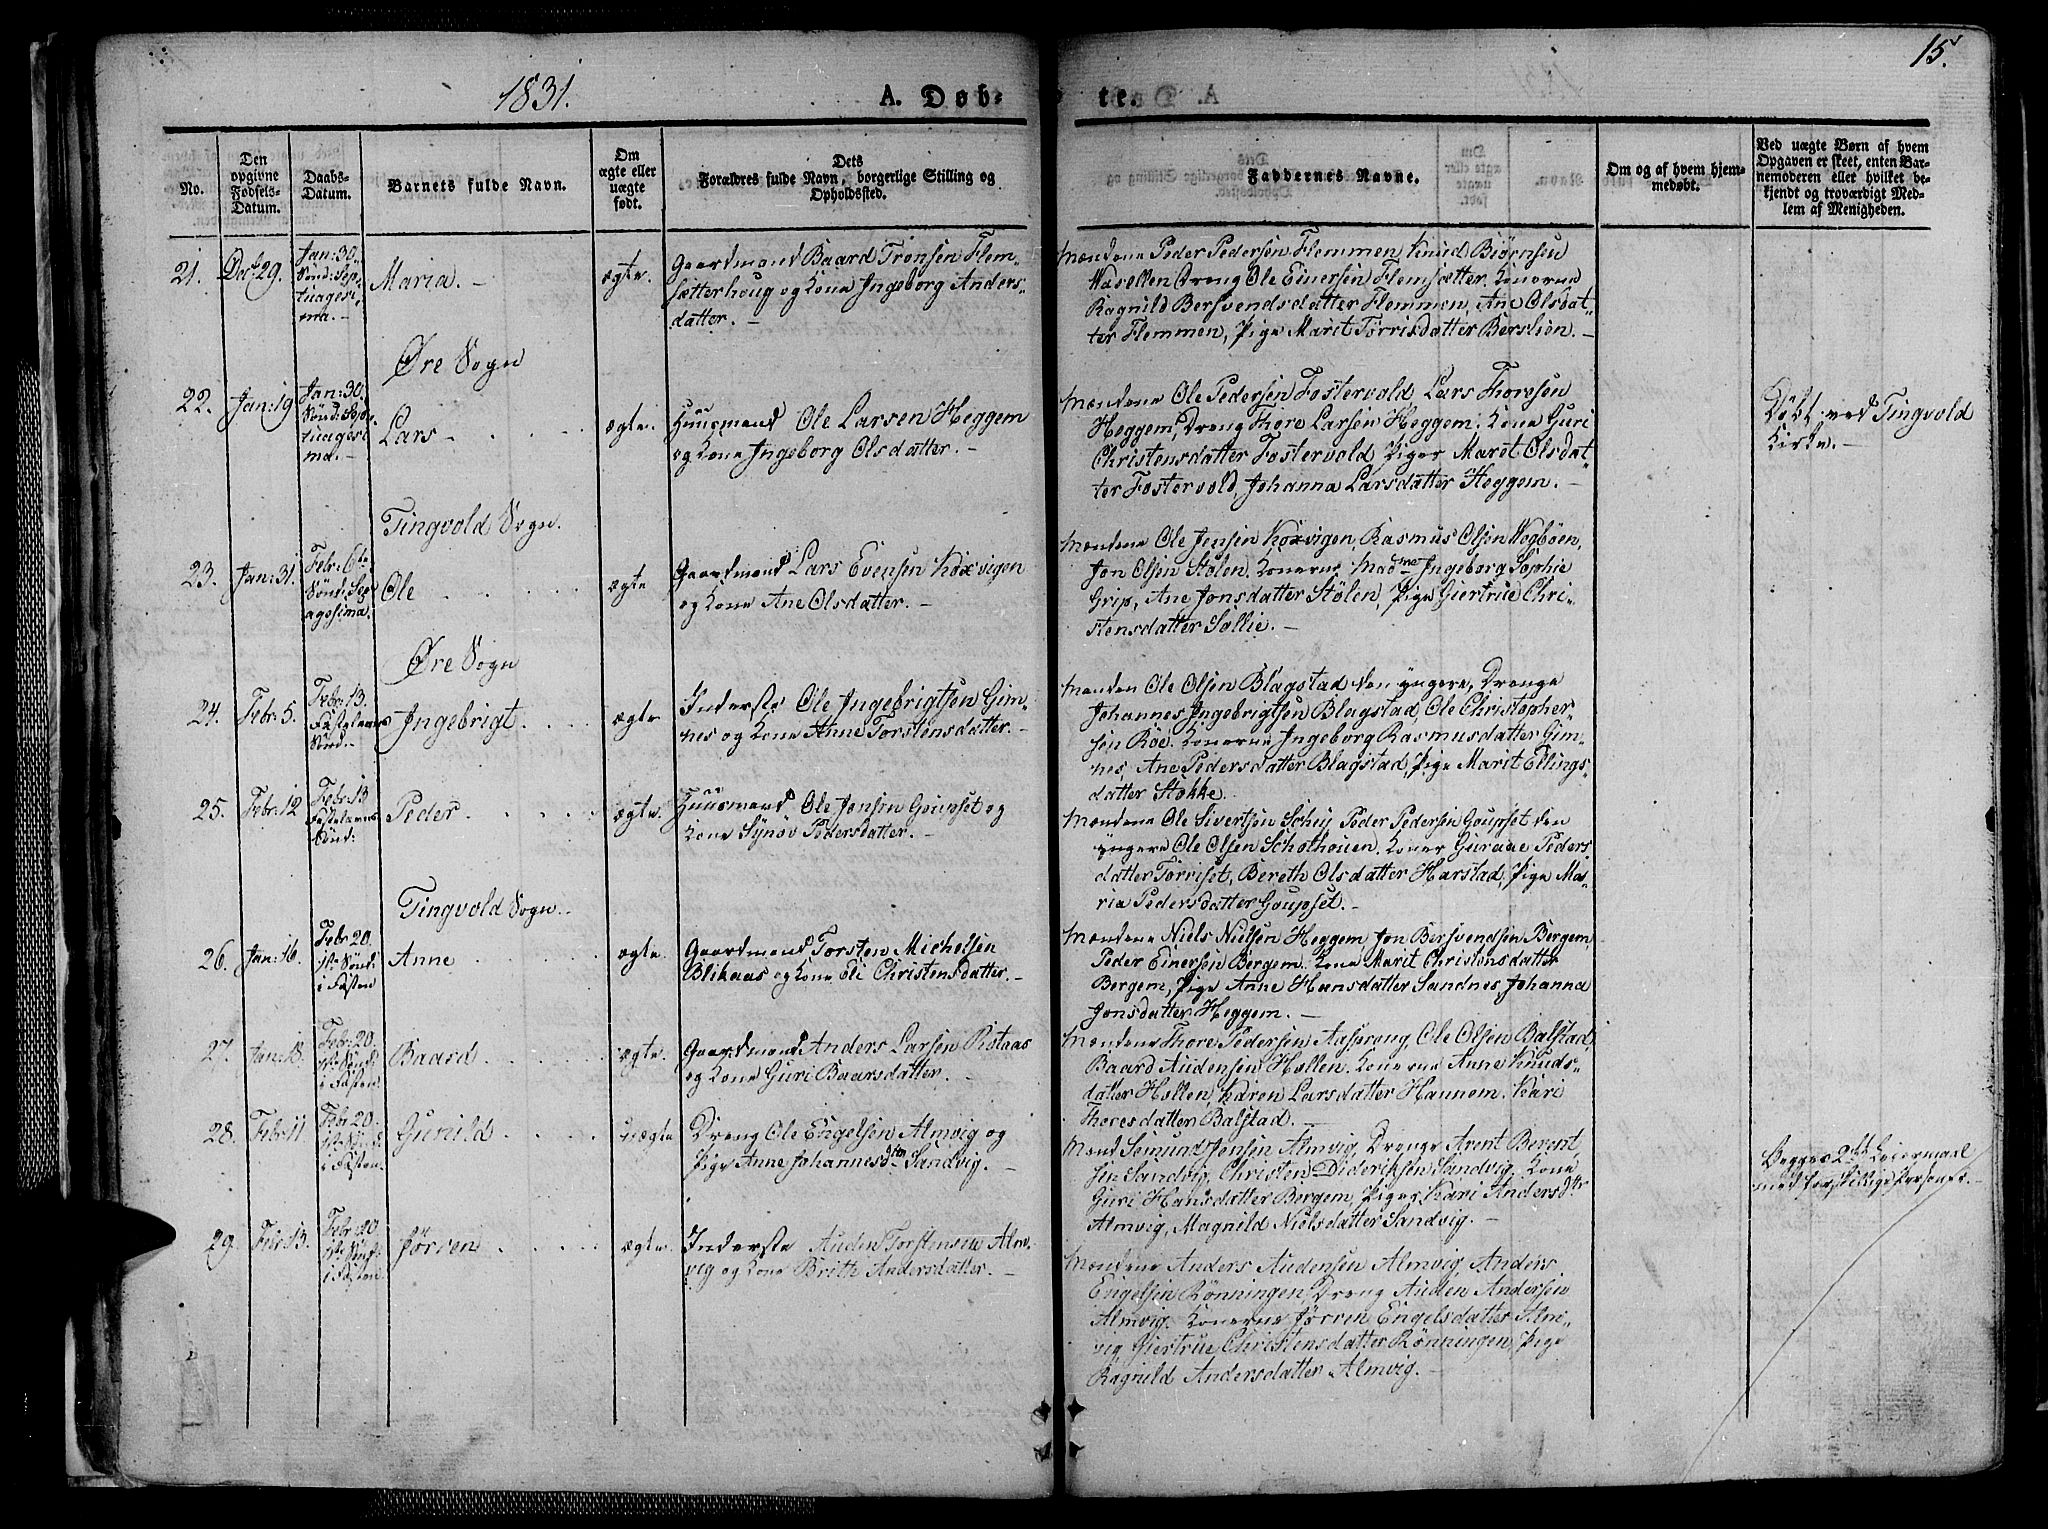 1831.
A. Døb-
te.
15.
No.
Den
opgivne
Fødsels-
Datum.
Daabs-
Datum.
Barnets fulde Navn.
Om
ægte eller
uægte
født.
Dets
Forældres fulde Navn, borgerlige Stilling og
Opholdssted.
Faddernes Navne.
Om og af hvem hjem-
medøbt.
Ved uægte Børn af hvem
Opgaven er skeet, enten Bar-
nemoderen eller hvilket be-
kjendt og troværdigt Med-
lem af Menigheden.
21. Decb 29.
Jan: 30.
Sönd: Sep-
tuagesi-
ma.
Maria.
ægte.
Gaardmand Baard Tronsen Flem-
sætterhoug og Kone Ingeborg Anders-
datter.
Mændene Peder Pedersen Flemmen, Knud Biörnsen
Dreng Ole Einersen Flemsætter. Konerne
Ragnild Bersvendsdatter Flemmen, Ane Olsdat-
ter Flemmen, Pige Marit Torrisdatter Berslien.
Øre Sogn
22. Jan: 19
Jan: 30.
Sönd: Sep-
tuagesi
ma.
Lars
ægte.
Huusmand Ole Larsen Heggem
og Kone Ingeborg Olsdatter.
Mændene Ole Pedersen Fostervold, Lars Thoresen
Heggem, Dreng Thore Larsen Heggem. Kone Guri
Christensdatter Fostervold, Piger Maret Olsdat-
ter Fostervold, Johanna Larsdatter Heggem.
Döbt ved Tingvold
Kirke.
Tingvold Sogn.
23. Jan: 31.
Febr: 6te
Sönd: Sex
agesima.
Ole
ægte
Gaardmand Lars Evensen Koxvigen
og Kone Ane Olsdatter.
Mændene Ole Jensen Koxvigen, Rasmus Olsen Vegböen,
Jon Olsen Stölen, Konerne Madme Ingeborg Sophie
Grip, Ane Jonsdatter Stölen, Pige Giertrue Chri-
stensdatter Sollie.
Øre Sogn
24. Febr: 5.
Febr: 13.
Fastelavns
Sönd.
Ingebrigt.
ægte
Inderste Ole Ingebrigtsen Gim-
nes og Kone Anne Torstensdatter.
Manden Ole Olsen Blagstad den yngere, Drenge
Johannes Ingebrigtsen Blagstad, Ole Christopher-
sen Röe. Konerne Ingeborg Rasmusdatter Gim-
nes, Ane Pedersdatter Blagstad, Pige Marit Ellings-
datter Stokke.
25. Febr: 12
Febr: 13
Fastelavns
Sönd:
Peder
ægte.
Huusmand Ole Jonsen Goupset og
Kone Synöv Pedersdatter.
Mændene Ole Sivertsen Schei, Peder Pedersen Goupset den
yngere Ole Olsen Scholhouen. Koner Guraae Peders-
datter Torriset, Bereth Olsdatter Harstad, Pige Ma-
ria Pedersdatter Goupset.
Tingvold Sogn.
26. Jan: 16.
Febr 20.
1ste Sönd:
i Fasten
Anne
ægte.
Gaardmand Torsten Michelsen
Blikaas og Kone Eli Christensdatter.
Mændene Niels Nielsen Heggem, Jon Bersvendsen Bergem,
Peder Einersen Bergem. Kone Marit Christensdatter
Bergem, Pige Anne Hansdatter Sandnes, Johanna
Jonsdatter Heggem.
27. Jan: 18.
Febr: 20.
1ste Sönd:
i Fasten
Baard
ægte.
Gaardmand Anders Larsen Rotaas
og Kone Guri Baarsdatter.
Mændene Thore Pedersen Aasprong, Ole Olsen Balstad,
Baard Audensen Hollen. Konerne Anne Knuds-
datter Hollen, Karen Larsdatter Hannem. Kari
Thoresdatter Balstad.
28. Febr: 11.
Febr: 20.
1ste Sönd:
i Fasten.
Gunild
uægte
Dreng Ole Engelsen Almvig og
Pige Anne Johannesdtr Sandvig.
Mand Semund Jonsen Almvig, Drenge Arent Berent
sen Sandvig, Christen Dideriksen Sandvig. Kone
Guri Hansdatter Bergem, Piger Kari Andersdtr
Almvig, Magnild Nielsdatter Sandvig.
Begges 2det Leiermaal
med forskillige Personer.
29. Febr: 13.
Febr: 20
1ste Sönd:
i Fasten
Jörren
ægte.
Inderste Auden Torstensen Alm-
vig og Kone Brith Andersdatter.
Mændene Anders Audensen Almvig, Anders
Engelsen Rönningen, Dreng Auden Andersen
Almvig. Konerne Jörren Engelsdatter Alm-
vig, Giertrue Christensdatter Rönningen, Pige
Ragnild Andersdatter Almvig.